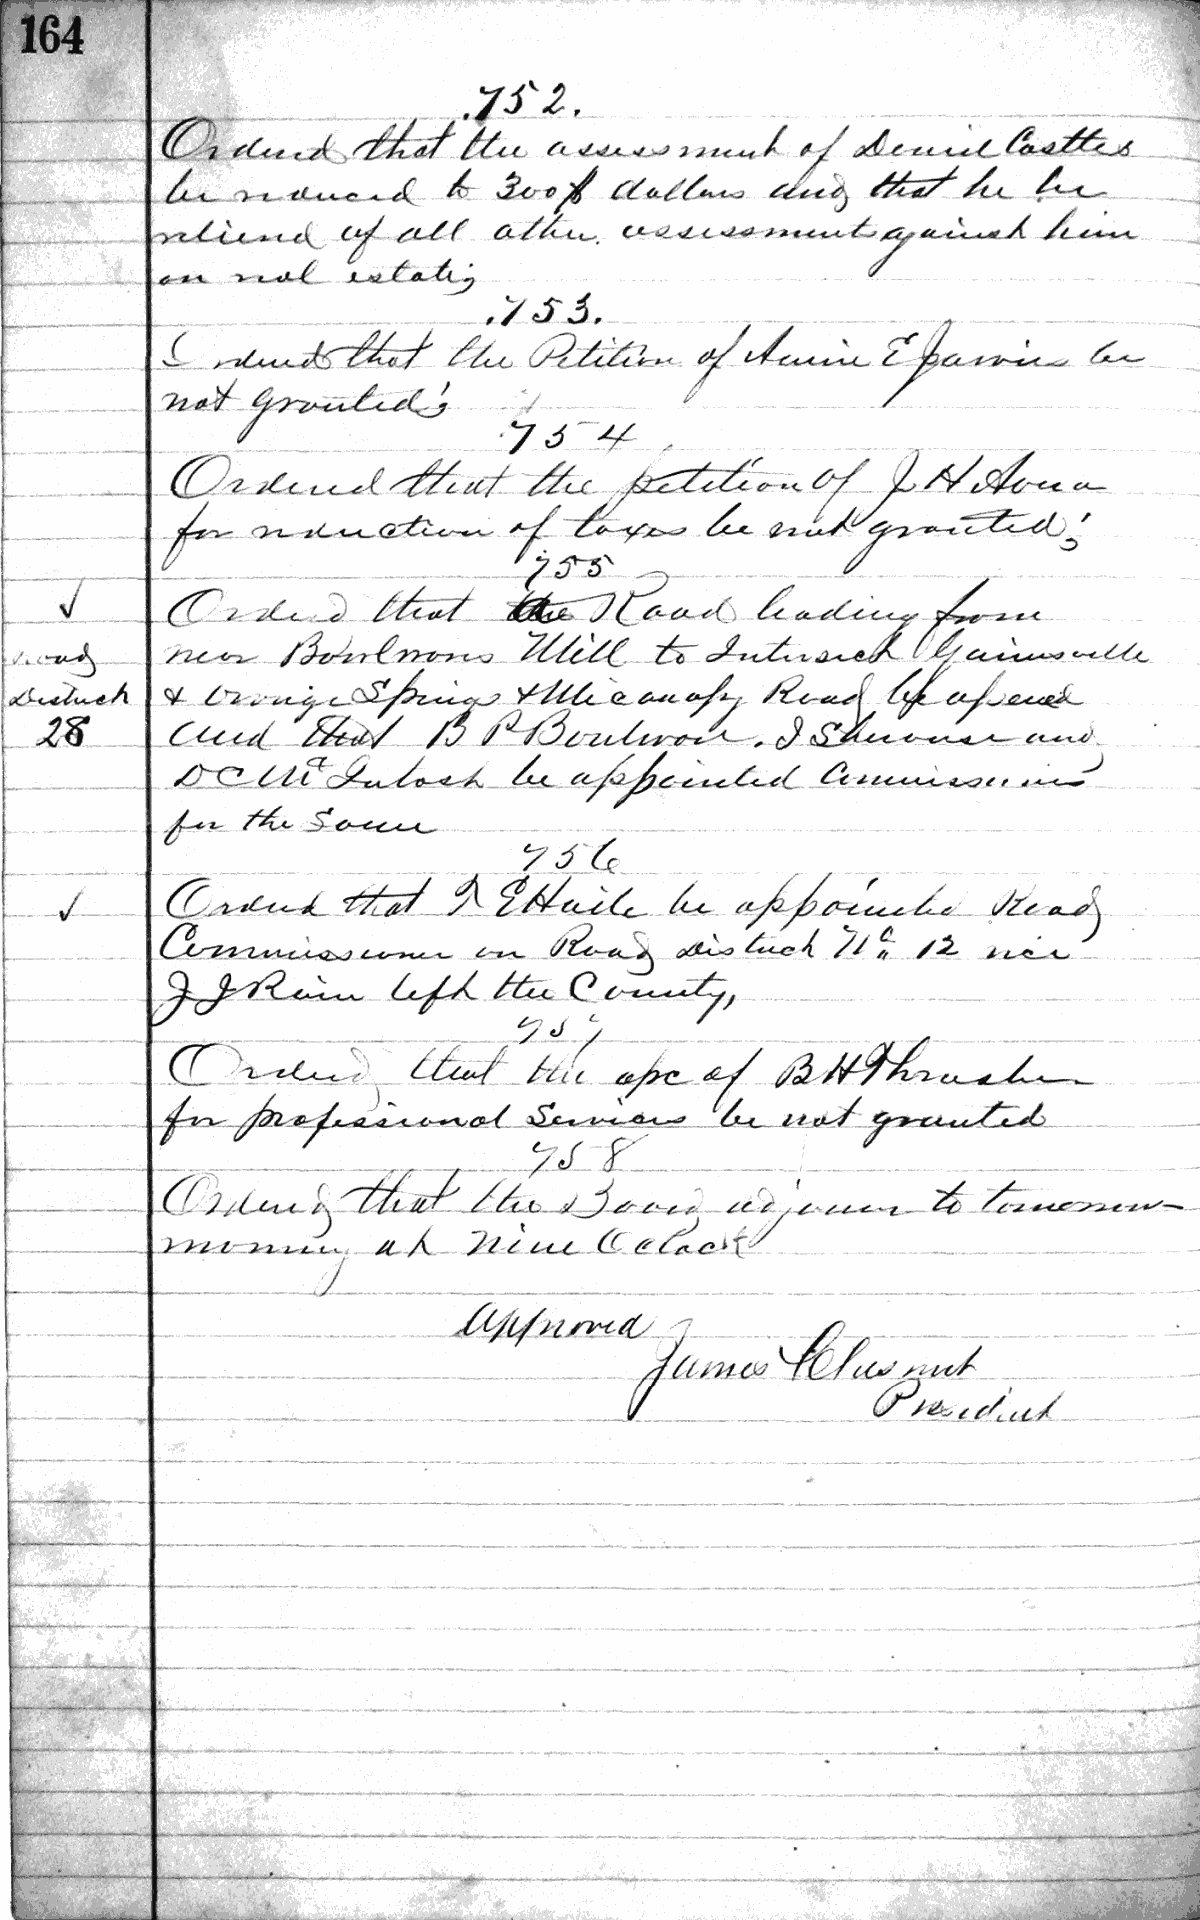 164
.752.
Ordered that the assessment of Daniel Castter
be reduced to 300$ dollars and that he be
relieved of all other assessment against him
on real estate;
.753.
Ordered that the Petition of Annie E Jarvis be
not granted;
.754
Ordered that the petition of J H Avera
for reduction of taxes be not granted;
755
✓
Ordered that the Road leading from
Road
near Boulwares Mill to Intersect Gainsville
District
& Orange Springs & Micanopy Road be opened
28
and that B P Boulware. J Sherouse and
D C McIntosh be appointed Commissioners
for the Same
756
✓
Ordered that T E Haile be appointed Road
Commissioner on Road District No 12 vice
J J Rain left the County,
757
Ordered that the apc of B H Thrasher
for professional Services be not granted
758
Ordered that the Board adjourn to tomorrow-
morning at Nine Oclock
Approved
James Chesnut
President